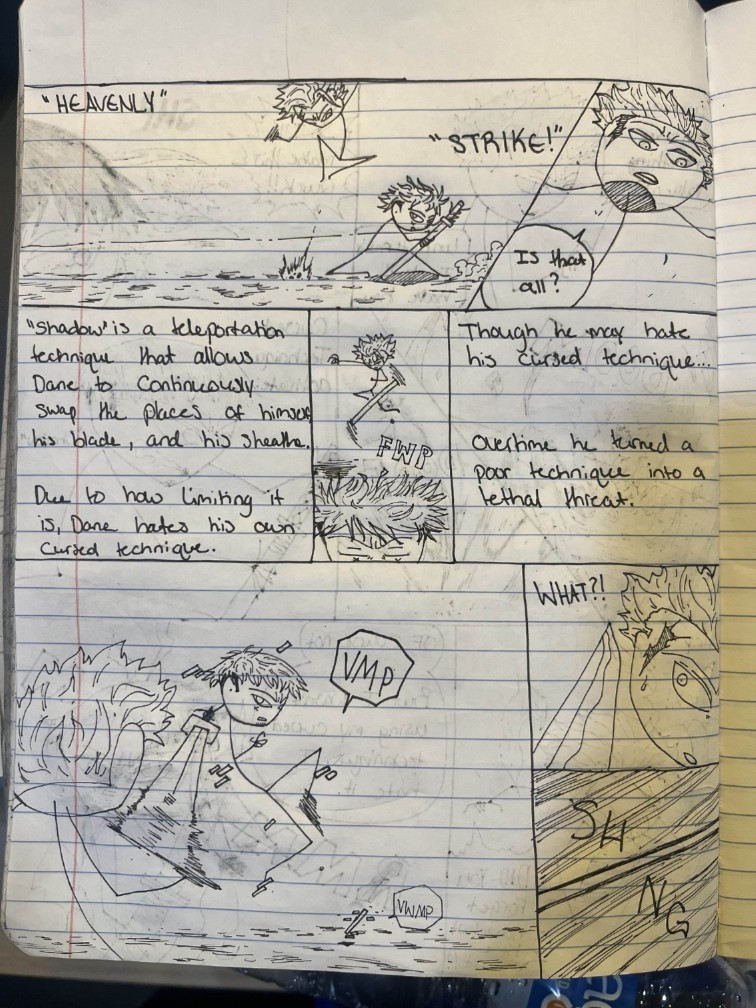 "HEAVENLY"
"STRIKE!"
Is that
all?
"Shadow" is a teleportation
technique that allows
Dane to Continuously
swap the places of himself
his blade, and his sheathe.
Due to how limiting it
is, Dane hates his own
Cursed technique.
FWP
Though he may hate
his cursed technique...
Overtime he turned a
poor technique into a
lethal threat.
VMP
VWMP
WHAT?!
SH
NG